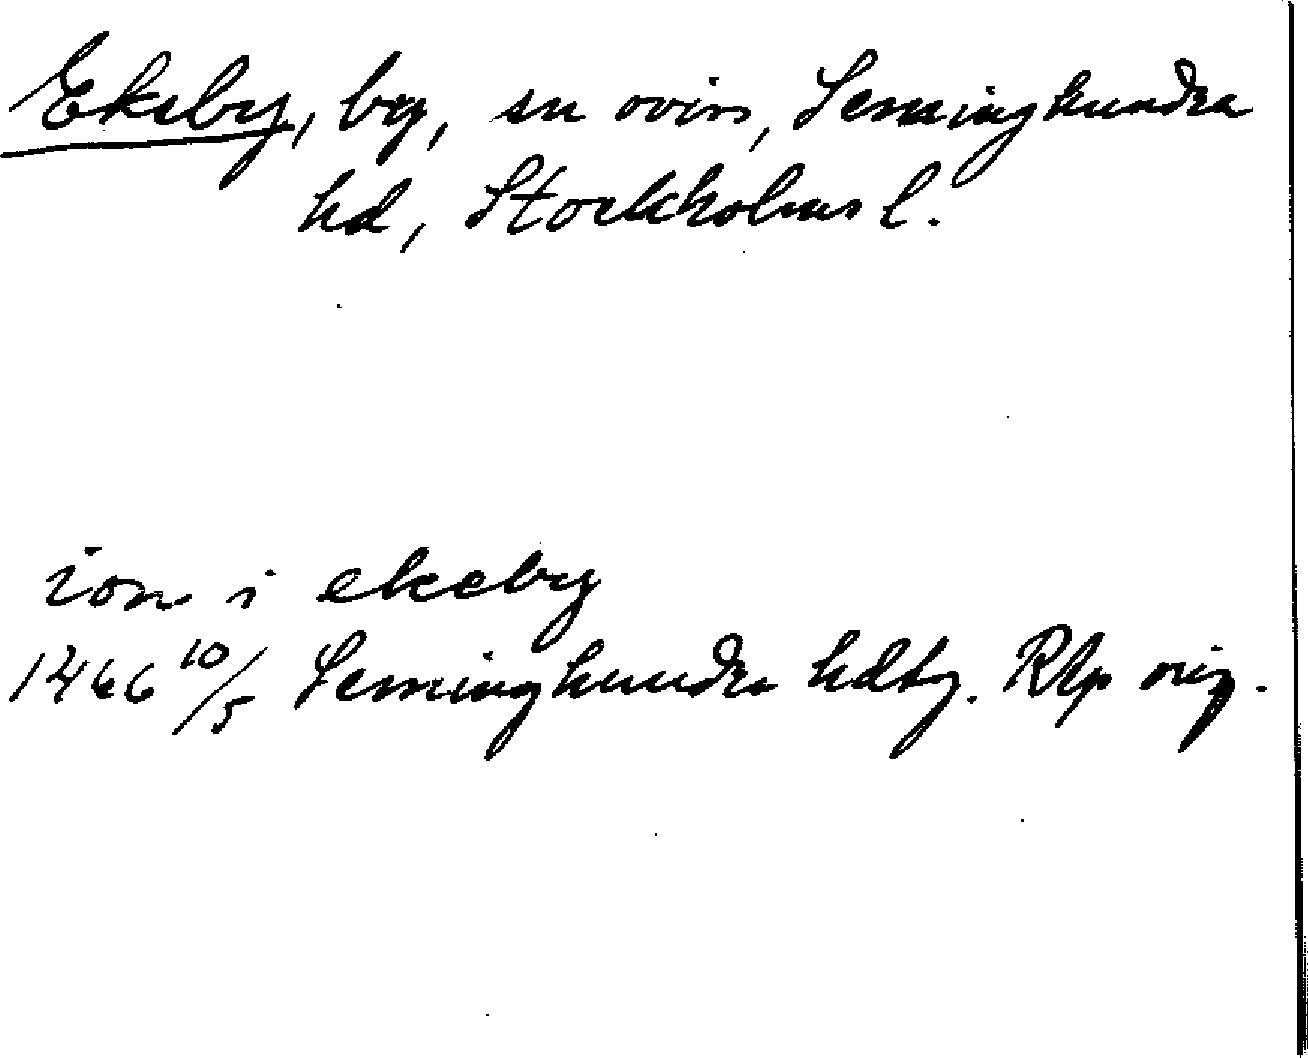 Ekeby, by, sn oviss, Seminghundra
hd, Stockholms l.
ion i ekeby
1466 10/5 Seminghundra hdtg. Rap orig.